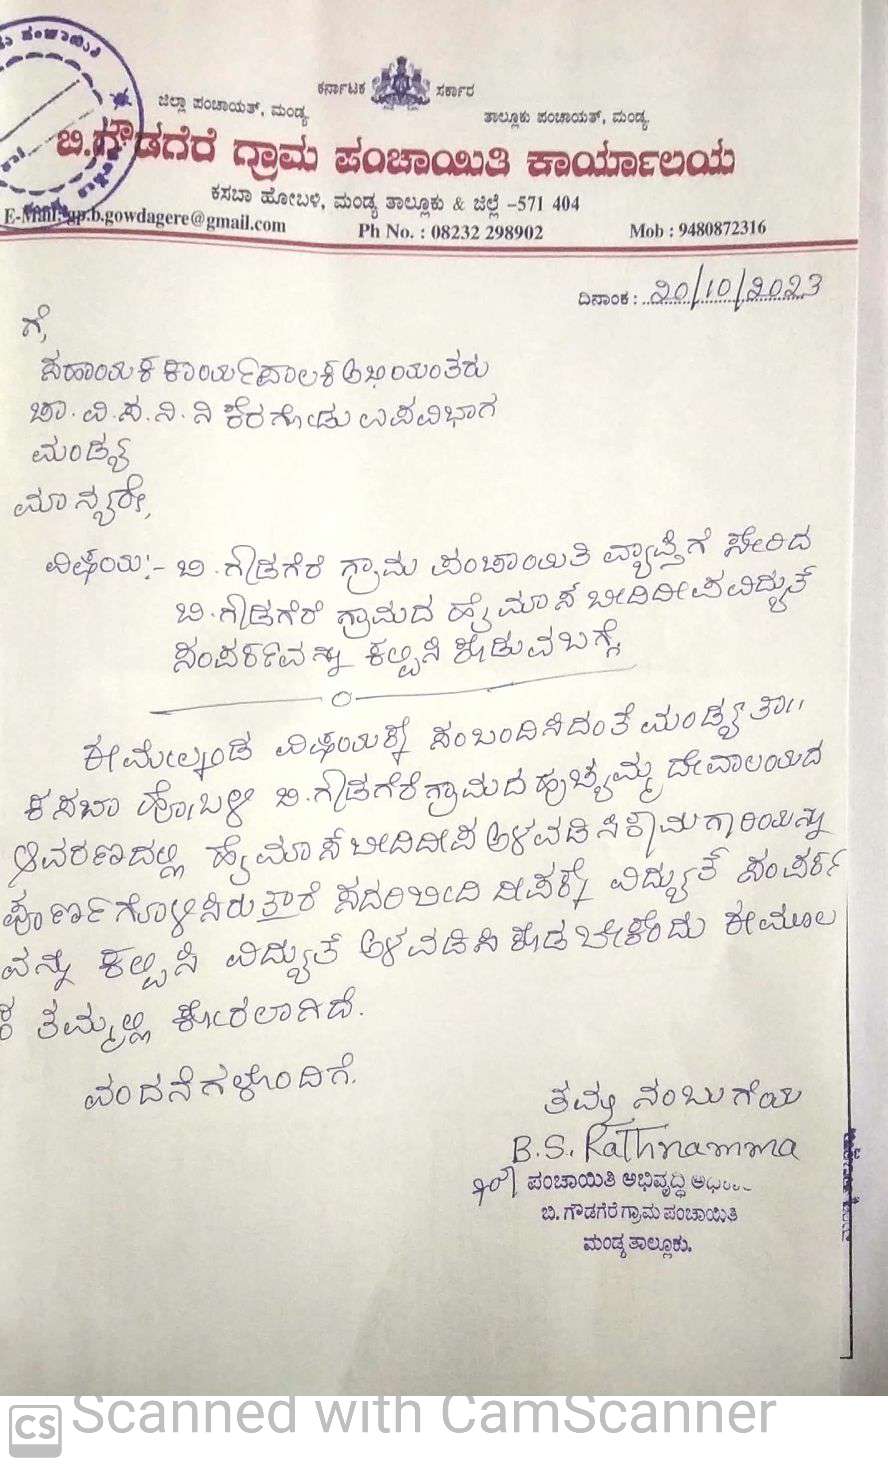 ಪಂಚಾಯಿತಿ
ಕರ್ನಾಟಕ ಸರ್ಕಾರ
ಜಿಲ್ಲಾ ಪಂಚಾಯತ್, ಮಂಡ್ಯ ತಾಲ್ಲೂಕು ಪಂಚಾಯತ್, ಮಂಡ್ಯ
ಬಿ.ಗೌಡಗೆರೆ ಗ್ರಾಮ ಪಂಚಾಯಿತಿ ಕಾರ್ಯಾಲಯ
ಕಸಬಾ ಹೋಬಳಿ, ಮಂಡ್ಯ ತಾಲ್ಲೂಕು & ಜಿಲ್ಲೆ -571 404
E-Mail: gp.b.gowdagere@gmail.com Ph No. : 08232 298902 Mob : 9480872316
ದಿನಾಂಕ : 20/10/2023
ಗೆ,
ಸಹಾಯಕ ಕಾರ್ಯಪಾಲಕ ಅಭಿಯಂತರು
ಚಾ.ವಿ.ಸ.ನಿ.ನಿ ಕೆರಗೋಡು ಉಪವಿಭಾಗ
ಮಂಡ್ಯ
ಮಾನ್ಯರೇ,
ವಿಷಯ:- ಬಿ.ಗೌಡಗೆರೆ ಗ್ರಾಮ ಪಂಚಾಯಿತಿ ವ್ಯಾಪ್ತಿಗೆ ಸೇರಿದ
ಬಿ.ಗೌಡಗೆರೆ ಗ್ರಾಮದ ಹೈಮಾಸ್ ಬೀದಿದೀಪ ವಿದ್ಯುತ್
ಸಂಪರ್ಕವನ್ನು ಕಲ್ಪಿಸಿ ಕೊಡುವ ಬಗ್ಗೆ
ಈ ಮೇಲ್ಕಂಡ ವಿಷಯಕ್ಕೆ ಸಂಬಂದಿಸಿದಂತೆ ಮಂಡ್ಯ ತಾ||
ಕಸಬಾ ಹೋಬಳಿ ಬಿ.ಗೌಡಗೆರೆ ಗ್ರಾಮದ ಹುಚ್ಚಮ್ಮ ದೇವಾಲಯದ
ಆವರಣದಲ್ಲಿ ಹೈಮಾಸ್ ಬೀದಿದೀಪ ಅಳವಡಿಸಿ ಕಾಮಗಾರಿಯನ್ನು
ಪೂರ್ಣಗೊಳಿಸಿರುತ್ತಾರೆ ಸದರಿ ಬೀದಿ ದೀಪಕ್ಕೆ ವಿದ್ಯುತ್ ಸಂಪರ್ಕ
ವನ್ನು ಕಲ್ಪಿಸಿ ವಿದ್ಯುತ್ ಅಳವಡಿಸಿ ಕೊಡಬೇಕೆಂದು ಈ ಮೂಲ
ಕ ತಮ್ಮಲ್ಲಿ ಕೋರಲಾಗಿದೆ.
ವಂದನೆಗಳೊಂದಿಗೆ.
ತಮ್ಮ ನಂಬುಗೆಯ
B.S. Rathnamma
ಪಂಚಾಯಿತಿ ಅಭಿವೃದ್ಧಿ
ಬಿ. ಗೌಡಗೆರೆ ಗ್ರಾಮ ಪಂಚಾಯಿತಿ
ಮಂಡ್ಯ ತಾಲ್ಲೂಕು.
CS Scanned with CamScanner